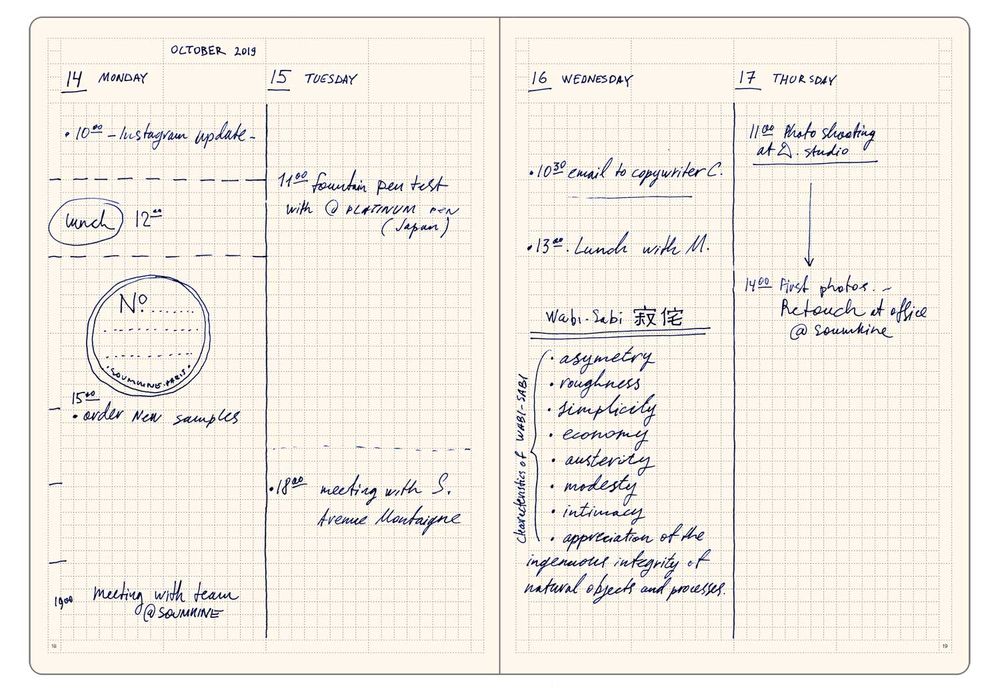 OCTOBER 2019
14 MONDAY
•10⁰⁰ – Instagram update –
Lunch 12⁰⁰
Nº ......
• SOUMKINE•PARIS •
15⁰⁰
• order new samples
19⁰⁰ meeting with team
@SOUMKINE
18
15 TUESDAY
11⁰⁰ fountain pen test
with @ PLATINUM PEN
(Japan)
•18⁰⁰ meeting with S.
Avenue Montaigne
16 WEDNESDAY
•10³⁰ email to copywriter C.
•13⁰⁰. Lunch with M.
Wabi-Sabi 寂侘
Characteristics of WABI-SABI
• asymetry
• roughness
• simplicity
• economy
• austerity
• modesty
• intimacy
• appreciation of the
ingenuous integrity of
natural objects and processes.
17 THURSDAY
11⁰⁰ Photo shooting
at D. studio
14⁰⁰ First photos. –
Retouch at office
@ Soumkine
19